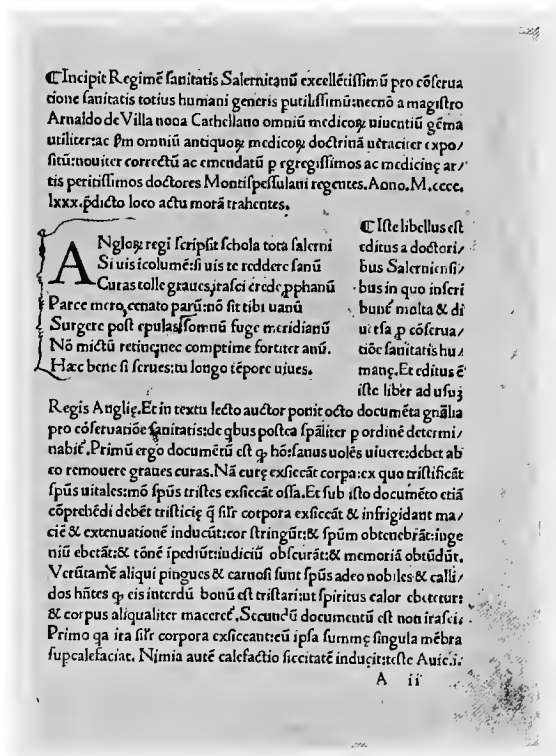 ⸿Incipit Regimē sanitatis Salernitanū excellētissimū pro cōserua
tione sanitatis totius humani generis putilissimū:necnō a magistro
Arnaldo de Villa noua Cathellano omniū medicoꝝ uiuentiū gēma
utiliter:ac ꝑm omniū antiquoꝝ medicoꝝ doctrinā ueraciter expo/
sitū:nouiter correctū ac emendatū p egregissimos ac medicinę ar/
tis peritissimos doctores Montispessulani regentes. Anno.M.cccc.
lxxx.p̄dicto loco actu morā trahentes.
ANgloꝝ regi scripsit schola tota salerni
Si uis īcolumē:si uis te reddere sanū
Curas tolle graues,irasci crede ꝓphanū
Parce mero,cenato parū:nō sit tibi uanū
Surgere post epulas,somnū fuge meridianū
Nō mictū retine,nec comprime fortiter anū.
Hæc bene si serues:tu longo tēpore uiues.
⸿Iste libellus est
editus a doctori/
bus Salerniensi/
bus in quo inseri
bunt̄ molta & di
uersa ꝓ cōserua/
tiōe sanitatis hu/
manę.Et editus ē
iste liber ad usuꝫ
Regis Anglię.Et in textu lecto auctor ponit octo documēta gn̄alia
pro cōseruatiōe sanitatis:de qbus postea sp̄aliter p ordinē determi/
nabit̄.Primū ergo documētū est ꝙ hō:sanus uolēs uiuere:debet ab
eo remouere graues curas.Nā curę exsiccāt corpa:ex quo tristificāt
sp̄us uitales:mō sp̄us tristes exsiccāt ossa.Et sub isto documēto etiā
cōprehēdi debēt tristicię q̄ sil̄r corpora exsiccāt & infrigidant ma/
ciē & extenuationē inducūt:cor stringūt:& sp̄um obtenebrāt:inge
niū ebetāt:& rōnē īpediūt:iudiciū obscurāt:& memoriā obtūdūt.
Verūtamē aliqui pingues & carnosi sunt sp̄us adeo nobiles & calli/
dos hn̄tes ꝙ eis interdū bonū est tristari:ut spiritus calor ebetetur:
& corpus aliqualiter maceret̄.Secundū documentū est non irasci.
Primo qa ira sil̄r corpora exsiccant:cū ipsa summę singula mēbra
supcalefaciat. Nimia autē calefactio siccitatē inducit:teste Auic.i.
A ii